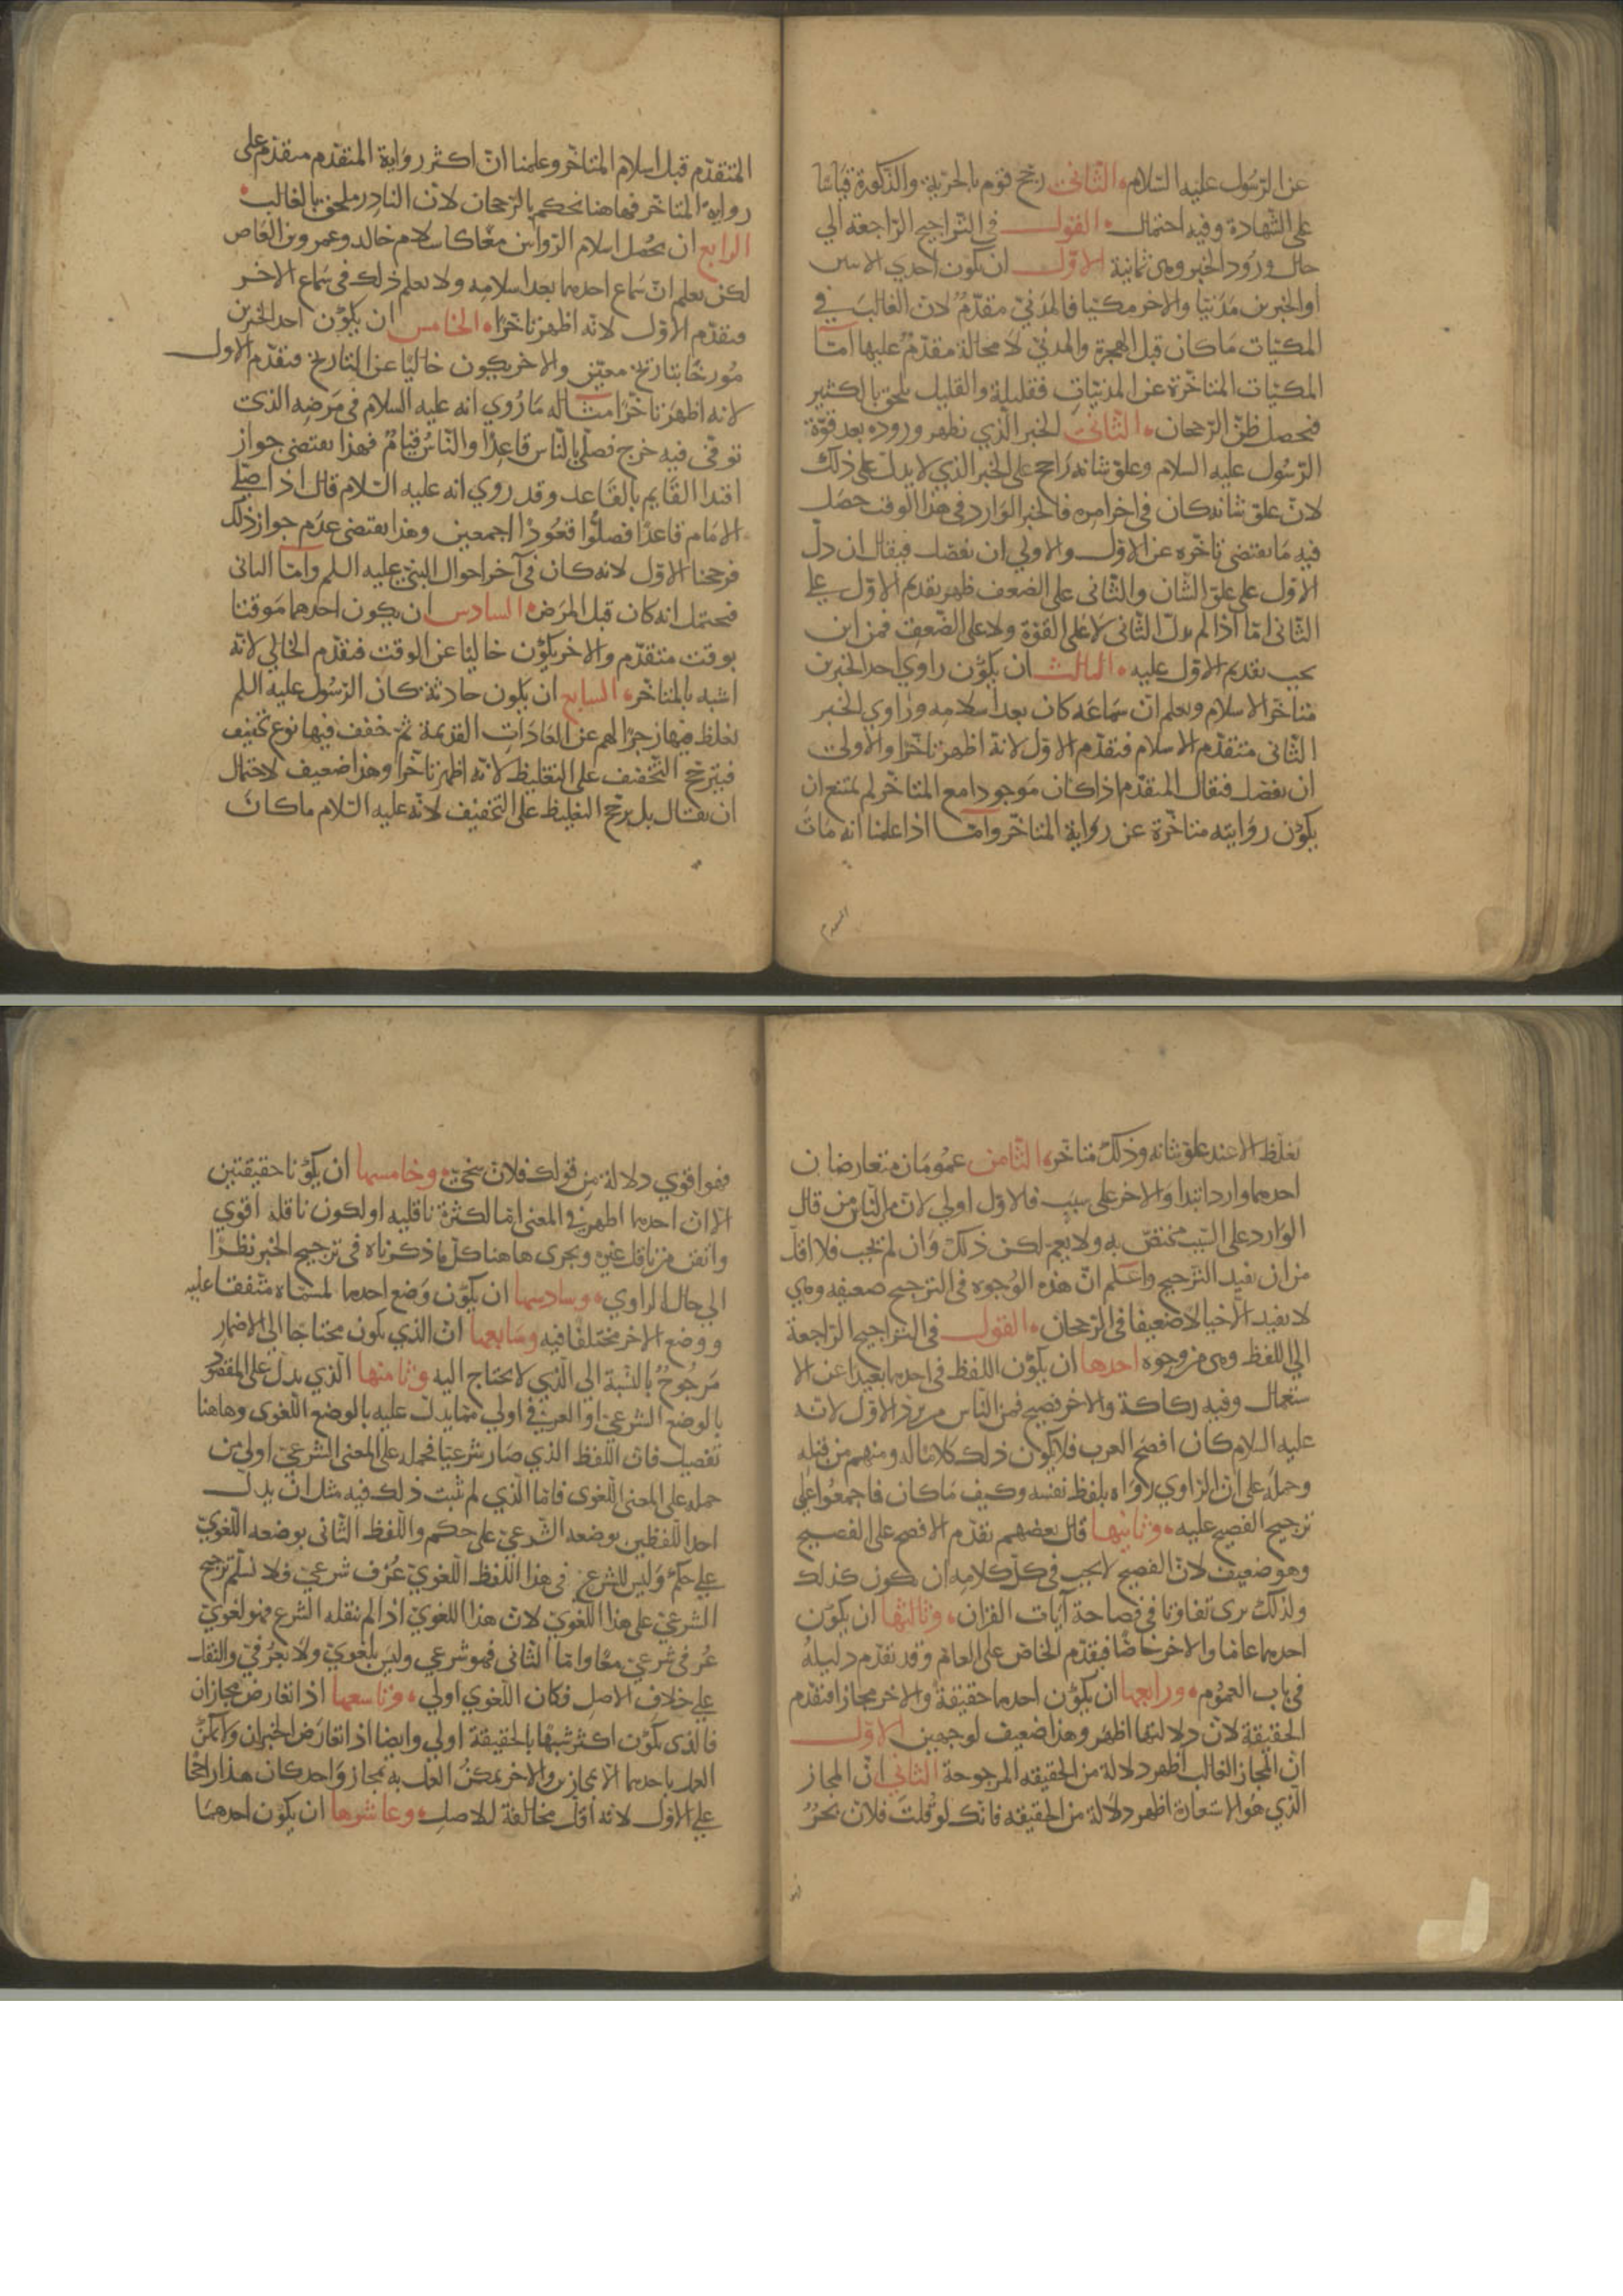 عن الرسول عليه السلام الثاني رجح قوم بالحرية والذكورة قياسا
على الشهادة وفيه احتمال القول في التراجيح الراجعة الي
حال ورود الخبر وهي ثمانية الاول ان تكون احدي الايتين
او الخبرين مدنيا والاخر مكيا فالمدني مقدم لان الغالب في
المكيات ما كان قبل الهجرة والمدني لا محالة مقدم عليها اما
المكيات المتاخرة عن المدنيات فقليلة والقليل يلحق بالكثير
فيحصل ظن الرجحان الثاني الخبر الذي يظهر وروده بعد قوة
الرسول عليه السلام وعلو شانه راجح على الخبر الذي لا يدل على ذلك
لان علو شانه كان في اخر امره فالخبر الوارد في هذا الوقت حصل
فيه ما يقتضي تاخره عن الاول والاولي ان يفصل فيقال ان دل
الاول على علو الشان والثاني على الضعف ظهر تقديم الاول علي
الثاني اما اذا لم يدل الثاني لا على القوة ولا على الضعف فمن اين
يجب تقديم الاول عليه الثالث ان يكون راوي احد الخبرين
متاخر الاسلام ويعلم ان سماعه كان بعد اسلامه وراوي الخبر
الثاني متقدم الاسلام فيقدم الاول لانه اظهر تاخرا والاولى
ان يفصل فيقال المتقدم اذا كان موجودا مع المتاخر لم يمتنع ان
يكون روايته متاخرة عن رواية المتاخر واما اذا علمنا انه مات
المتقدم
المتقدم قبل اسلام المتاخر وعلمنا ان اكثر رواية المتقدم متقدم على
رواية المتاخر فهاهنا نحكم بالرجحان لان النادر ملحق بالغالب
الرابع ان يحصل اسلام الراويين معا كاسلام خالد وعمرو بن العاص
لكن يعلم ان سماع احدهما بعد اسلامه ولا يعلم ذلك في سماع الاخر
فيقدم الاول لانه اظهر تاخرا الخامس ان يكون احد الخبرين
مورخا بتاريخ معين والاخر يكون خاليا عن التاريخ فيقدم الاول
لانه اظهر تاخرا مثاله ما روي انه عليه السلام في مرضه الذي
توفي فيه خرج فصلى بالناس قاعدا والناس قيام فهذا يقتضي جواز
اقتدا القايم بالقاعد وقد روي انه عليه السلام قال اذا صلى
الامام قاعدا فصلوا قعودا اجمعين وهذا يقتضي عدم جواز ذلك
فرجحنا الاول لانه كان في آخر احوال النبي عليه السلم واما الثاني
فيحتمل انه كان قبل المرض السادس ان يكون احدهما موقتا
بوقت متقدم والاخر يكون خاليا عن الوقت فيقدم الخالي لانه
اشبه بالمتاخر السابع ان يكون حادثة كان الرسول عليه السلم
يغلظ فيها زجرا لهم عن العادات القديمة ثم خفف فيها نوع تخفيف
فيترجح التخفيف على التغليظ لانه اظهر تاخرا وهذا ضعيف لاحتمال
ان يقال بل يرجح التغليظ على التخفيف لانه عليه السلام ما كان
يغلظ الا عند علو شانه وذلك متاخر الثامن عمومان متعارضان
احدهما وارد ابتدا والاخر على سبب فالاول اولي لان من الناس من قال
الوارد على السبب مختص به ولا يعم لكن ذلك وان لم يجب فلا اقل
من ان يفيد الترجيح واعلم ان هذه الوجوه في الترجيح ضعيفه وهي
لا تفيد الا خيالا ضعيفا في الرجحان القول في التراجيح الراجعة
الي اللفظ وهي من وجوه احدها ان يكون اللفظ في احدهما بعيدا عن الا
ستعمال وفيه ركاكة والاخر فصيح فمن الناس من يرد الاول لانه
عليه السلام كان افصح العرب فلا يكون ذلك كلاما له ومنهم من قبله
وحمله على ان الراوي رواه بلفظ نفسه وكيف ما كان فاجمعوا على
ترجيح الفصيح عليه وثانيها قال بعضهم يقدم الافصح على الفصيح
وهو ضعيف لان الفصيح لا يجب في كل كلامه ان يكون كذلك
ولذلك يرى تفاوتا في فصاحة آيات القران وثالثها ان يكون
احدهما عاما والاخر خاصا فيقدم الخاص على العام وقد تقدم دليله
في باب العموم ورابعها ان يكون احدهما حقيقة والاخر مجازا فيقدم
الحقيقة لان دلالتها اظهر وهذا ضعيف لوجهين الاول
ان المجاز الغالب اظهر دلالة من الحقيقه المرجوحة الثاني ان المجاز
الذي هو الاستعارة اظهر دلالة من الحقيقه فانك لو قلت فلان بحر
فهو
فهو اقوي دلالة من قولك فلان سخي وخامسها ان يكونا حقيقتين
الا ان احدهما اظهر في المعنى اما لكثرة ناقليه او لكون ناقله اقوي
واتقن من ناقل غيره ويجري هاهنا كل ما ذكرناه في ترجيح الخبر نظرا
الي حال الراوي وسادسها ان يكون وضع احدهما لمسماه متفقا عليه
ووضع الاخر مختلفا فيه وسابعها ان الذي يكون محتاجا الى الاضمار
مرجوح بالنسبة الى الذي لا يحتاج اليه وثامنها الذي يدل على المقصود
بالوضع الشرعي او العرفي اولي مما يدل عليه بالوضع اللغوى وهاهنا
تفصيل فان اللفظ الذي صار شرعيا فحمله على المعنى الشرعي اولى من
حمله على المعنى اللغوى فاما الذي لم يثبت ذلك فيه مثل ان يدل
احد اللفظين بوضعه الشرعي على حكم واللفظ الثاني بوضعه اللغوي
علي حكم وليس للشرع في هذا اللفظ اللغوي عرف شرعي فلا نسلم ترجيح
الشرعي على هذا اللغوي لان هذا اللغوي اذا لم ينقله الشرع فهو لغوي
عرفي شرعي معا واما الثاني فهو شرعي وليس بلغوي ولا بعرفي والنقل
علي خلاف الاصل فكان اللغوي اولي وتاسعها اذا تعارض مجازان
فالذي يكون اكثر شبها بالحقيقة اولي وايضا اذا تعارض الخبران ولا يمكن
العمل باحدهما الا بمجازين والاخر يمكن العمل به بمجاز واحد كان هذا راجحا
علي الاول لانه اقل مخالفة للاصل وعاشرها ان يكون احدهما